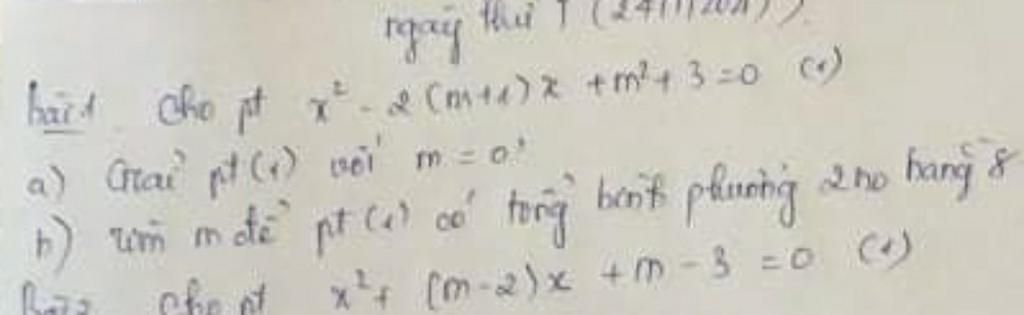 ngày thứ 1 (24/11/2021)).
bài 1 Cho pt x² - 2(m+1)x + m² + 3 = 0 (1)
a) Giải pt (1) với m = 0
b) tìm m để pt (1) có tổng bình phương 2 no bằng 8
Bài 2 Cho pt x² + (m-2)x + m - 3 = 0 (1)